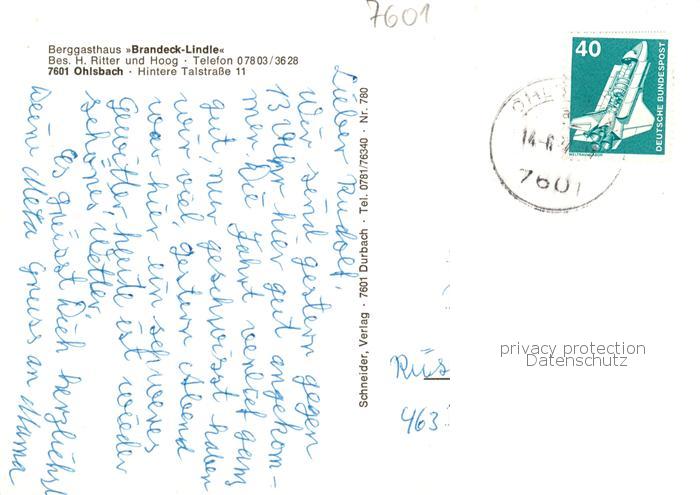 7601
Berggasthaus »Brandeck-Lindle«
Bes. H. Ritter und Hoog · Telefon 07803/3628
7601 Ohlsbach · Hintere Talstraße 11
Lieber Rudolf,
Wir sind gestern gegen
13 Uhr hier gut angekom-
men. Die Fahrt verlief ganz
gut, nur geschwitzt haben
wir viel, gestern Abend
war hier ein schweres
Gewitter, heute ist wieder
schönes Wetter.
Es grüsst Dich herzlichst
Deine Meta Gruss an Mama
Schneider, Verlag · 7601 Durbach · Tel. 0781/76340 · Nr. 780
40
DEUTSCHE BUNDESPOST
WELTRAUMLABOR
7601
Rüs
463
privacy protection
Datenschutz